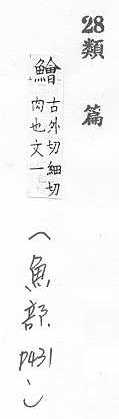 28類篇
鱠古外切細切
肉也文一
(魚部 P431)